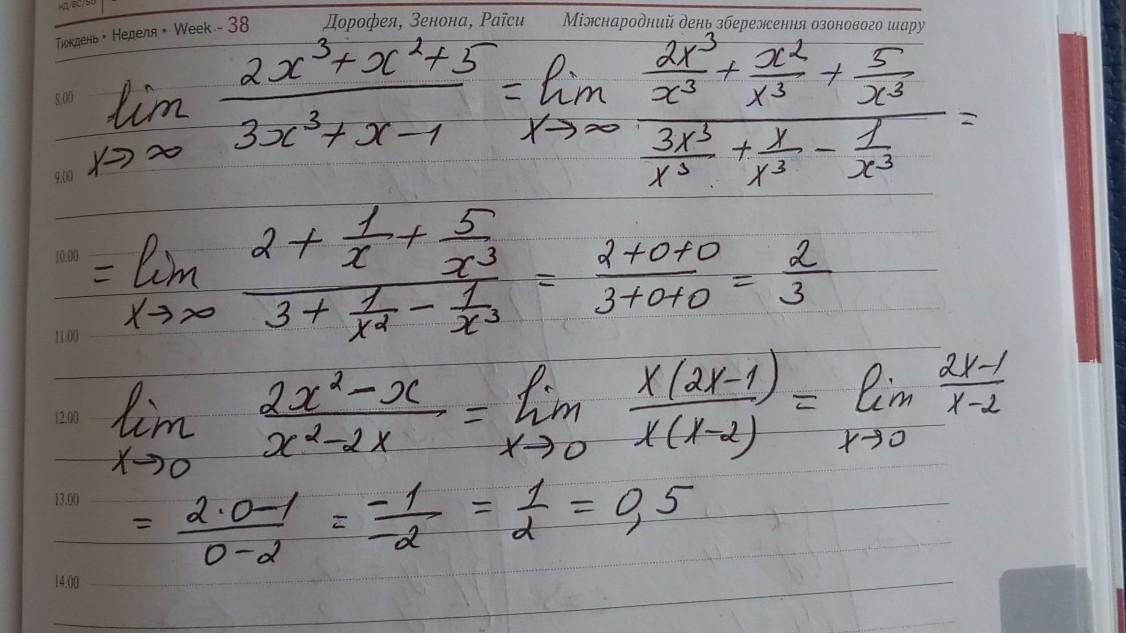 Тиждень • Неделя • Week - 38 Дорофея, Зенона, Раїси Міжнародний день збереження озонового шару
8.00
lim x→∞ (2x³+x²+5)/(3x³+x−1) = lim x→∞ (2x³/x³ + x²/x³ + 5/x³)/(3x³/x³ + x/x³ − 1/x³) =
9.00
10.00
= lim x→∞ (2 + 1/x + 5/x³)/(3 + 1/x² − 1/x³) = (2+0+0)/(3+0+0) = 2/3
11.00
12.00
lim x→0 (2x²−x)/(x²−2x) = lim x→0 x(2x−1)/x(x−2) = lim x→0 (2x−1)/(x−2)
13.00
= (2·0−1)/(0−2) = −1/−2 = 1/2 = 0,5
14.00